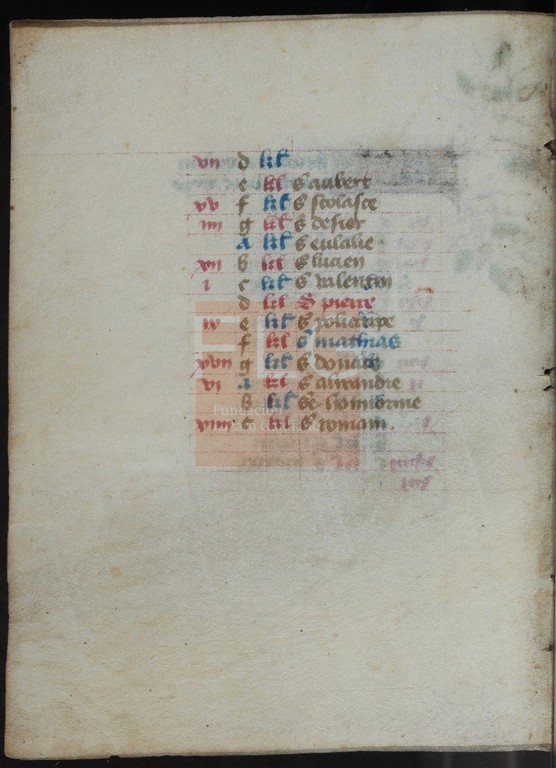 vii d kł
e kł S aubert
xv f kł S scolasce
iiii g kł S desier
a kł S eulalie
xii b kł S lucien
i c kł S valentin
d kł S pierre
ix e kł S policarpe
f kł S mathias
xvii g kł S donace
vi a kł S alixandre
b kł Se honnorine
xiiii c kł S romain.
Fundación